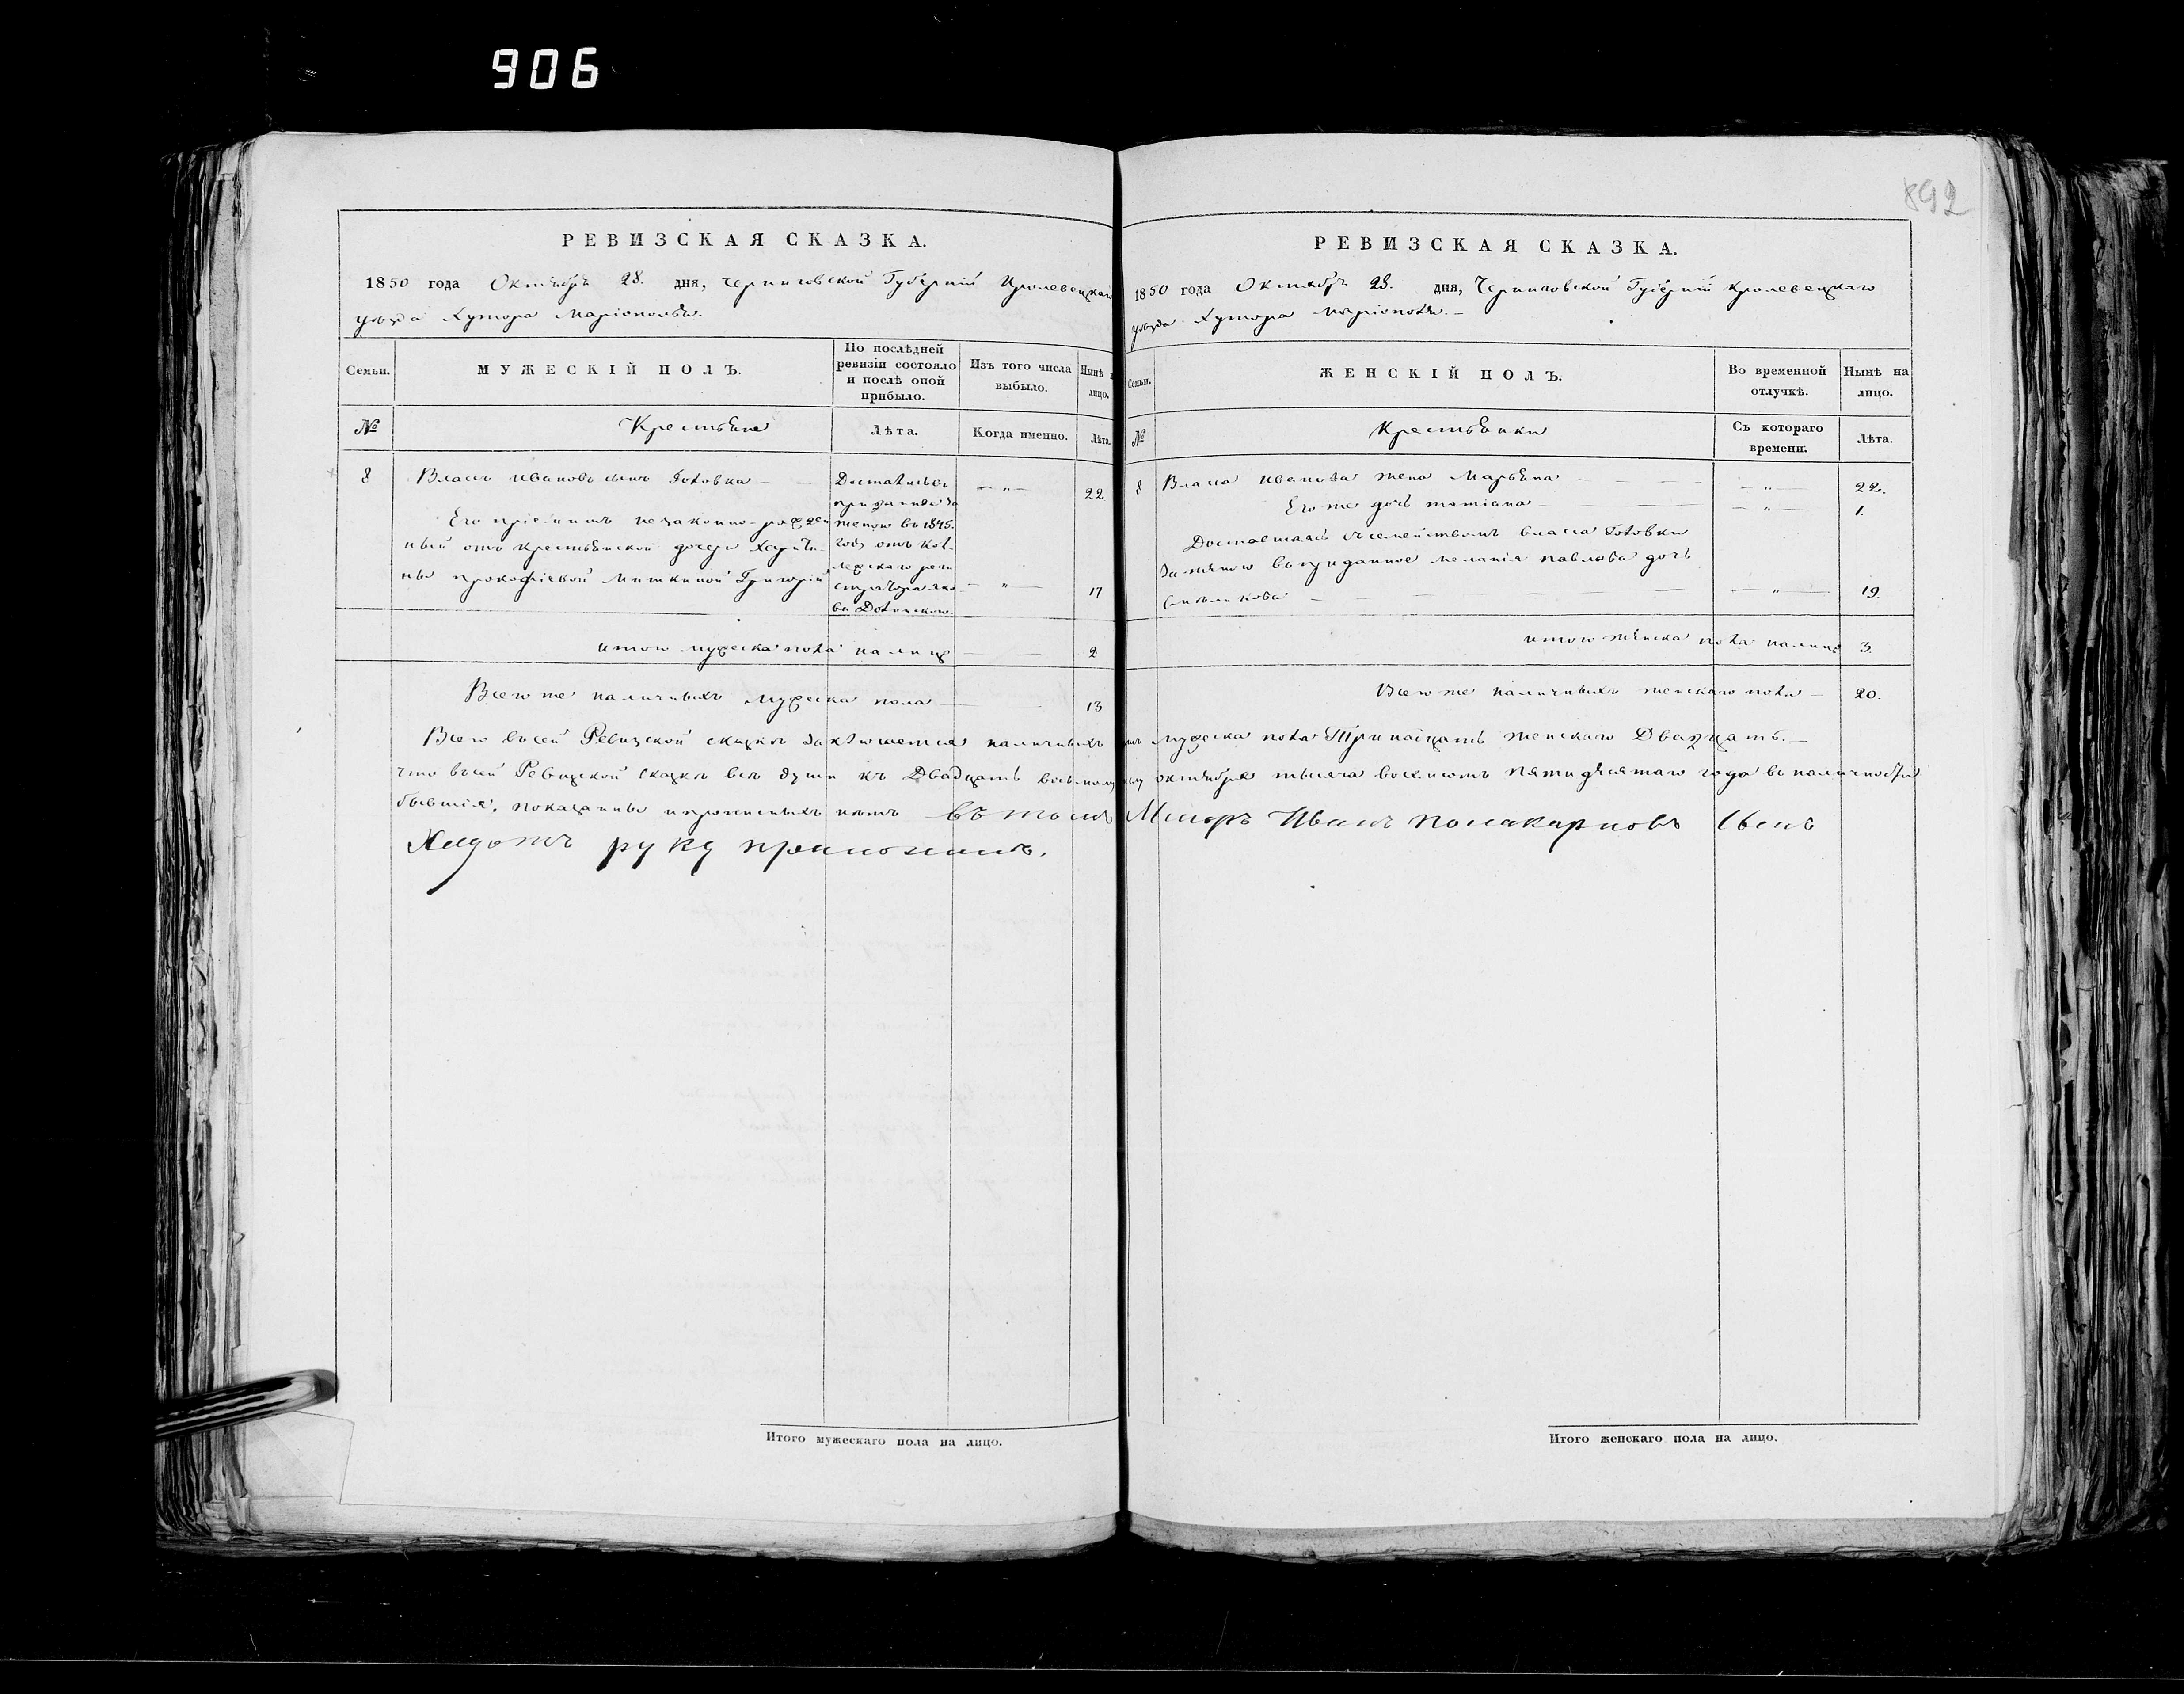 906
892
РЕВИЗСКАЯ СКАЗКА.
1850 года Октября 28. дня, Черниговской Губерніи Кролевецкаго
уѣзда Хутора Маріополя.
Семьи.
МУЖЕСКІЙ ПОЛЪ.
По послѣдней ревизіи состояло и послѣ оной прибыло.
Изъ того числа выбыло.
Нынѣ на лицо.
№
Крестьяне
Лѣта.
Когда именно.
Лѣта.
8 Власъ Ивановъ сынъ Головка — — 22
Его пріемышъ незаконно-рожден
ный отъ крестьянской дочери
Прокофіевой Мишкиной Григорій — " — 17
Достались въ
приданное за
женою въ 1845.
году отъ Кол-
лежскаго реги
стратора Яко
ва
итого мужеска пола на лицо — 2
Всего же наличныхъ мужеска пола — 13
РЕВИЗСКАЯ СКАЗКА.
1850 года Октября 28. дня, Черниговской Губерніи Кролевецкаго
уѣзда Хутора Маріополя. —
Семьи.
ЖЕНСКІЙ ПОЛЪ.
Во временной отлучкѣ.
Нынѣ на лицо.
№
Крестьянки
Съ котораго времени.
Лѣта.
8 Власа Иванова жена Марьяна — " — 22.
Его же дочь татіана — " — 1.
Доставшаяся съ семействомъ власа Головки
за женою въ приданное меланія павлова дочь
— " — 19.
итого женска пола на лицо 3.
Всего же наличныхъ женскаго пола — 20.
Всего въ сей Ревизской сказкѣ заключается наличныхъ душъ мужеска пола Тринаіцать женскаго Двадцать. —
что в сей Ревизской сказкѣ всѣ души къ Двадцать восьмому октября тысяча восемсотъ пятидесятаго года в наличности
бывшія, показанны и прописныхъ нѣтъ въ томъ Иванъ Поликарповъ сынъ
руку приложилъ.
Итого мужескаго пола на лицо.
Итого женскаго пола на лицо.